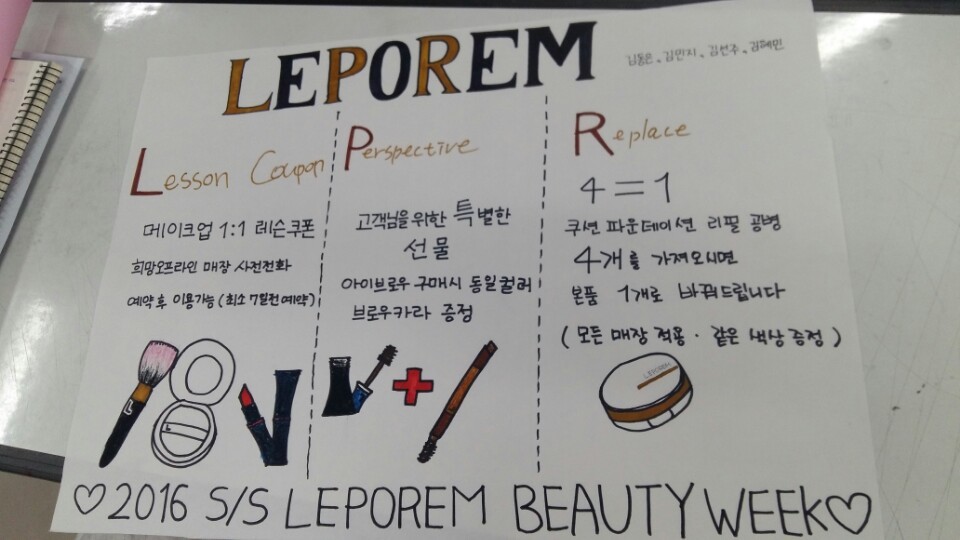 LEPOREM
김동은、김민지、김선주、김혜민
Lesson Coupon
메이크업 1:1 레슨쿠폰
희망오프라인 매장 사전전화
예약 후 이용가능 (최소 7일전 예약)
Perspective
고객님을 위한 특별한
선물
아이브로우 구매시 동일컬러
브로우카라 증정
Replace
4=1
쿠션 파운데이션 리필 공병
4개를 가져오시면
본품 1개로 바꿔드립니다
(모든 매장 적용· 같은 색상 증정)
L
L
LEPOREM
♡2016 S/S LEPOREM BEAUTY WEEK♡